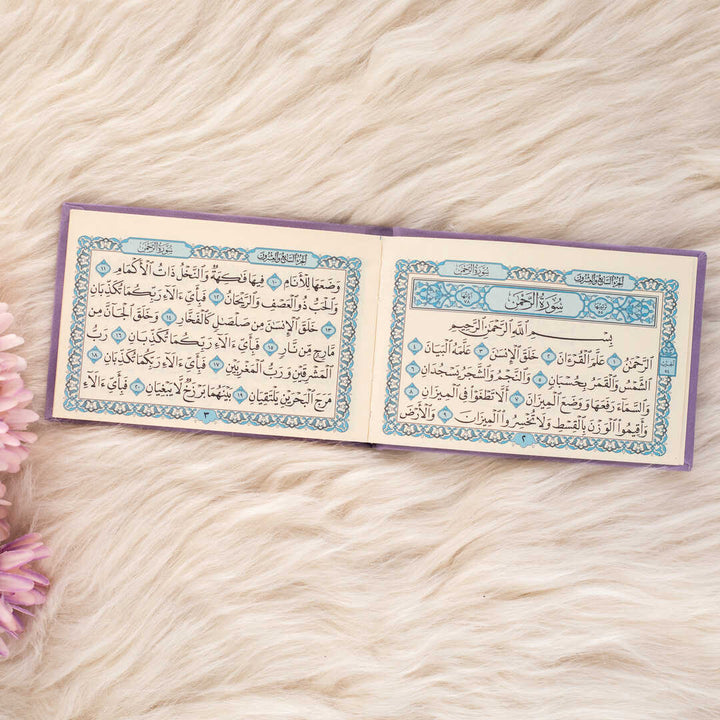 الجزء السابع والعشرون
سورة الرحمن
سُورَةُ الرَّحْمٰن
بِسْمِ اللَّهِ الرَّحْمَٰنِ الرَّحِيمِ
الرَّحْمَٰنُ ١ عَلَّمَ الْقُرْءَانَ ٢ خَلَقَ الْإِنسَٰنَ ٣ عَلَّمَهُ الْبَيَانَ ٤
الشَّمْسُ وَالْقَمَرُ بِحُسْبَانٍ ٥ وَالنَّجْمُ وَالشَّجَرُ يَسْجُدَانِ ٦
وَالسَّمَآءَ رَفَعَهَا وَوَضَعَ الْمِيزَانَ ٧ أَلَّا تَطْغَوْا۟ فِى الْمِيزَانِ ٨
وَأَقِيمُوا۟ الْوَزْنَ بِالْقِسْطِ وَلَا تُخْسِرُوا۟ الْمِيزَانَ ٩ وَالْأَرْضَ
٢
الجزء السابع والعشرون
سورة الرحمن
وَضَعَهَا لِلْأَنَامِ ١٠ فِيهَا فَٰكِهَةٌ وَالنَّخْلُ ذَاتُ الْأَكْمَامِ ١١
وَالْحَبُّ ذُو الْعَصْفِ وَالرَّيْحَانُ ١٢ فَبِأَىِّ ءَالَآءِ رَبِّكُمَا تُكَذِّبَانِ
١٣ خَلَقَ الْإِنسَٰنَ مِن صَلْصَٰلٍ كَالْفَخَّارِ ١٤ وَخَلَقَ الْجَآنَّ مِن
مَّارِجٍ مِّن نَّارٍ ١٥ فَبِأَىِّ ءَالَآءِ رَبِّكُمَا تُكَذِّبَانِ ١٦ رَبُّ
الْمَشْرِقَيْنِ وَرَبُّ الْمَغْرِبَيْنِ ١٧ فَبِأَىِّ ءَالَآءِ رَبِّكُمَا تُكَذِّبَانِ ١٨
مَرَجَ الْبَحْرَيْنِ يَلْتَقِيَانِ ١٩ بَيْنَهُمَا بَرْزَخٌ لَّا يَبْغِيَانِ ٢٠ فَبِأَىِّ ءَالَآءِ
٣